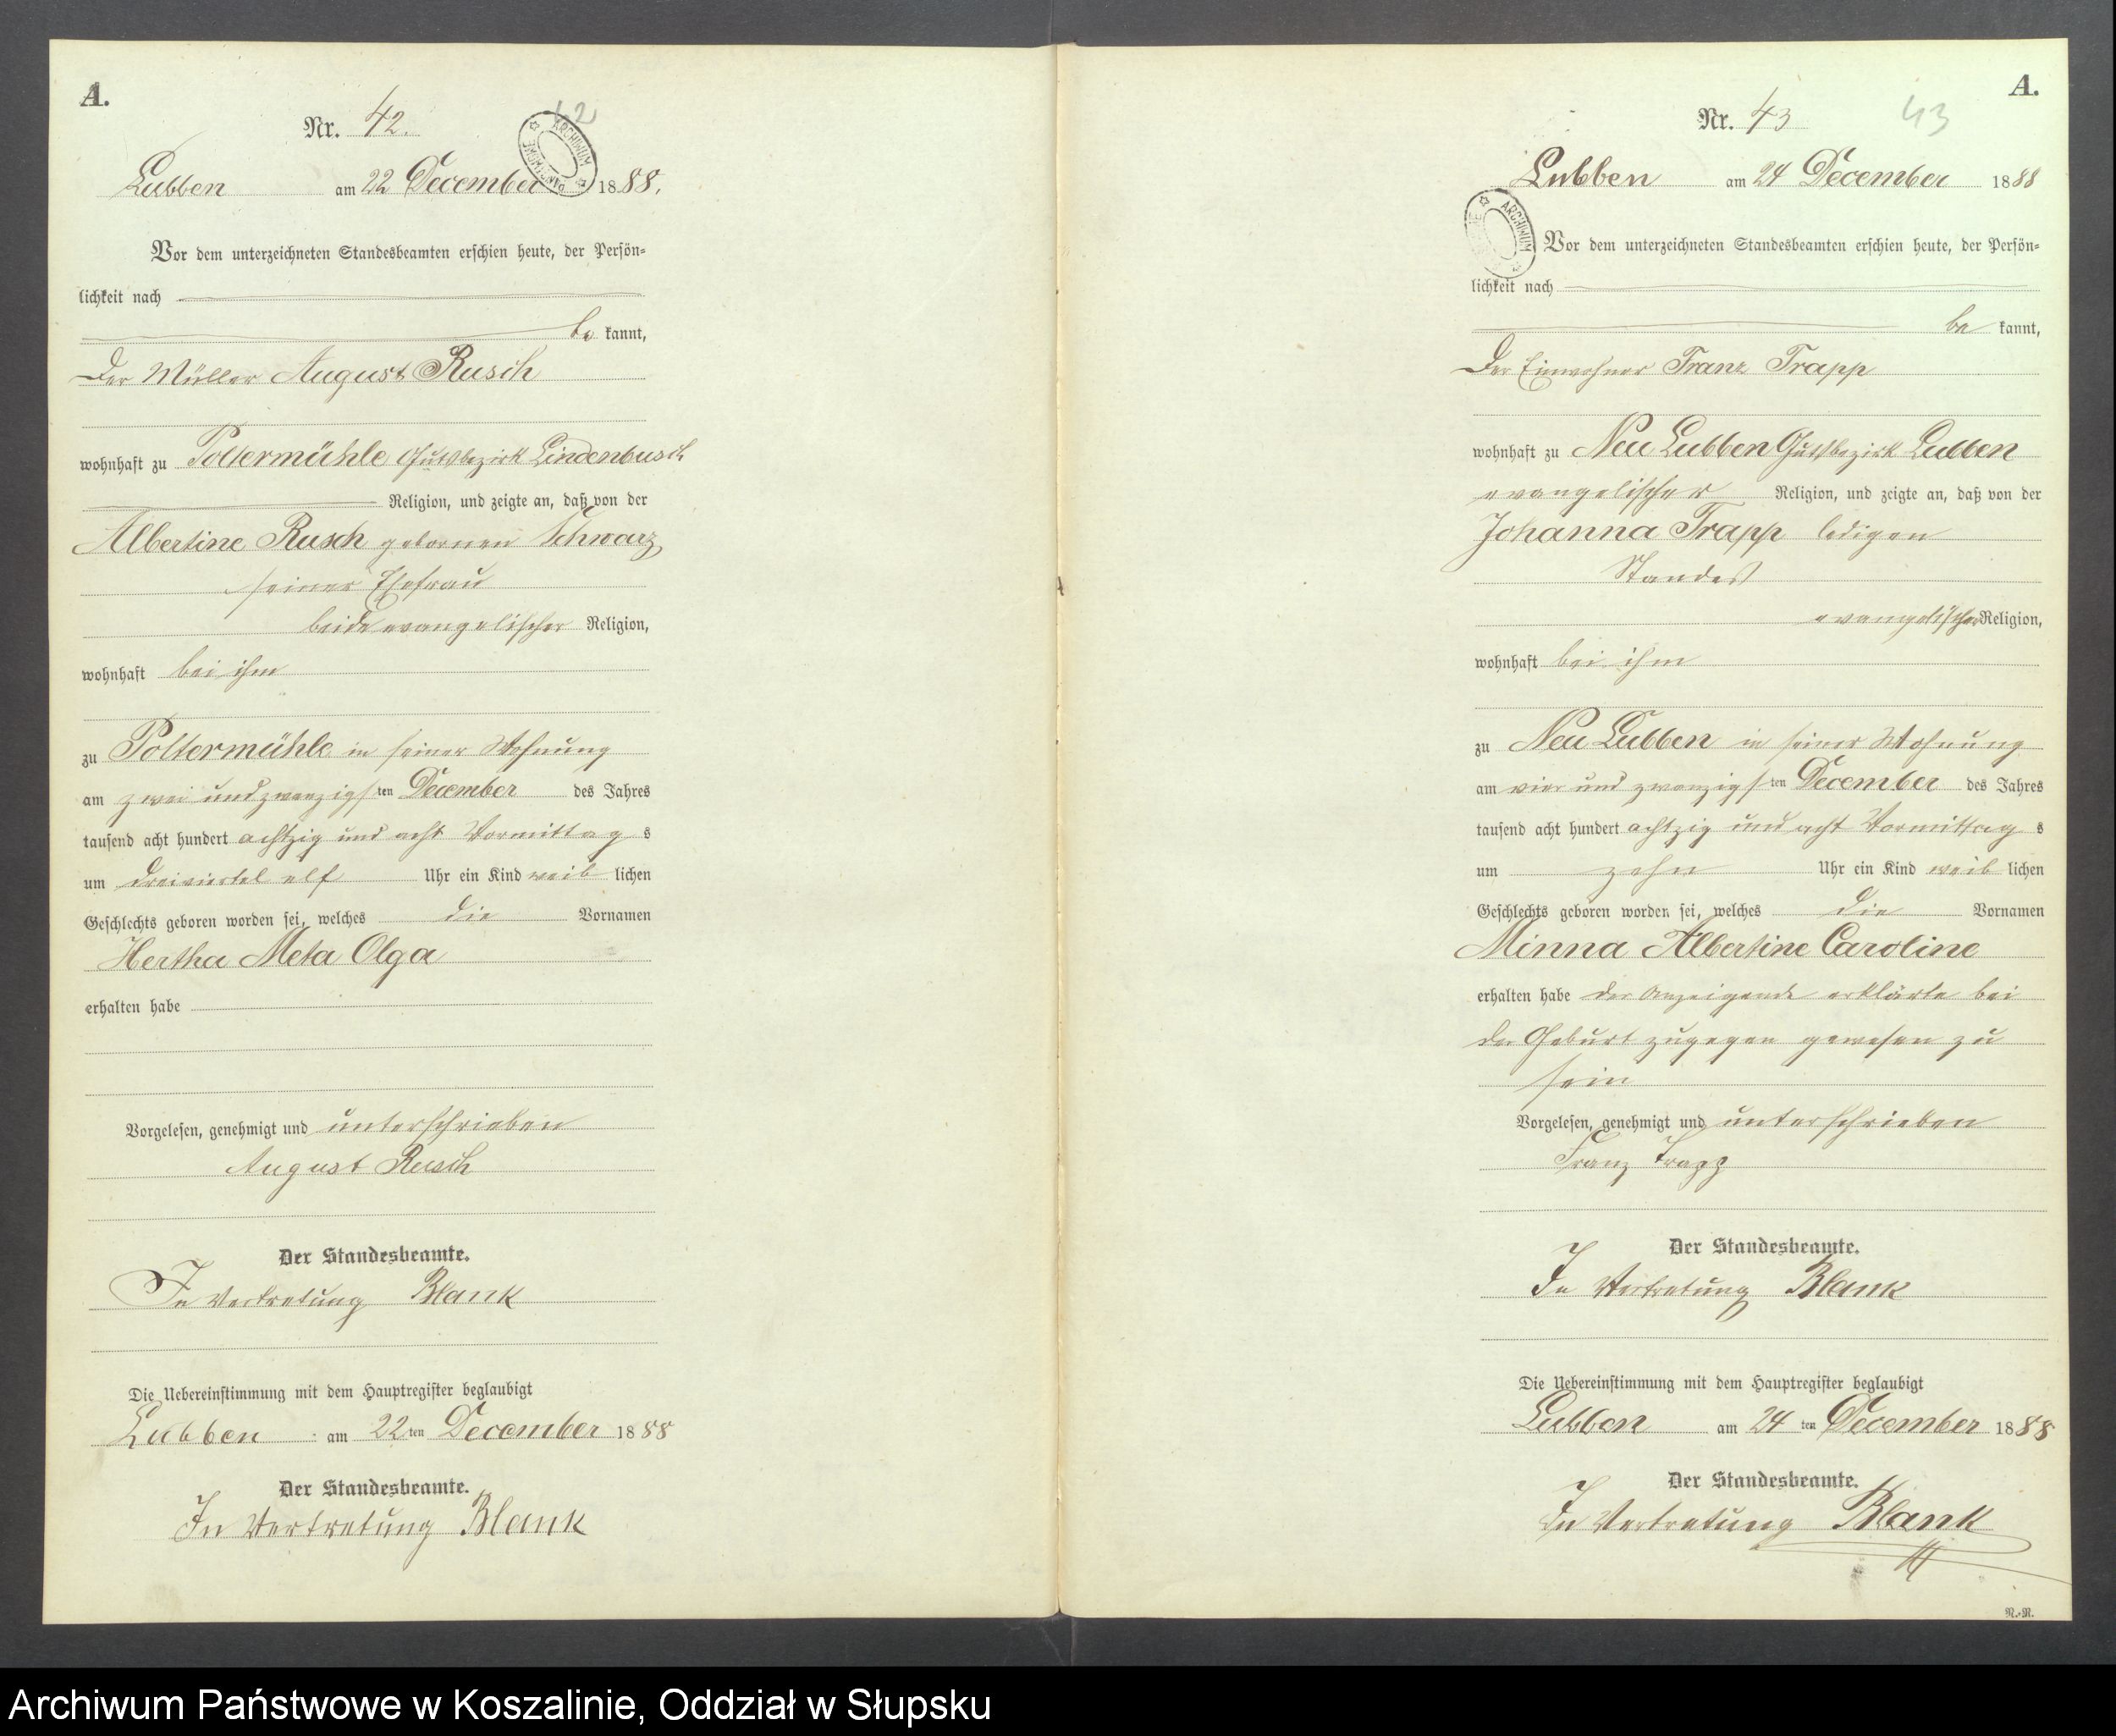 A.
Nr. 42.
42
ARCHIWUM PAŃSTWOWE
Lubben am 22 December 1888.
Vor dem unterzeichneten Standesbeamten erschien heute, der Persön-
lichkeit nach
be kannt,
Der Müller August Rusch
wohnhaft zu Poltermühle Gutsbezirk Lindenbusch
Religion, und zeigte an, daß von der
Albertine Rusch gebornen Schwarz
seiner Ehefrau
beide evangelischer Religion,
wohnhaft bei ihm
zu Poltermühle in seiner Wohnung
am zwei und zwanzigsten December des Jahres
tausend acht hundert achtzig und acht Vormittags
um dreiviertel elf Uhr ein Kind weiblichen
Geschlechts geboren worden sei, welches die Vornamen
Hertha Meta Olga
erhalten habe
Vorgelesen, genehmigt und unterschrieben
August Rusch
Der Standesbeamte.
In Vertretung Blank
Die Uebereinstimmung mit dem Hauptregister beglaubigt
Lubben am 22ten December 1888
Der Standesbeamte.
In Vertretung Blank
A.
Nr. 43
43
ARCHIWUM
Lubben am 24 December 1888
Vor dem unterzeichneten Standesbeamten erschien heute, der Persön-
lichkeit nach
be kannt,
Der Einwohner Franz Trapp
wohnhaft zu Neu Lubben Gutsbezirk Lubben
evangelischer Religion, und zeigte an, daß von der
Johanna Trapp ledigen
Standes
evangelischer Religion,
wohnhaft bei ihm
zu Neu Lubben in seiner Wohnung
am vier und zwanzigsten December des Jahres
tausend acht hundert achtzig und acht Vormittags
um zehn Uhr ein Kind weiblichen
Geschlechts geboren worden sei, welches die Vornamen
Minna Albertine Caroline
erhalten habe der Anzeigende erklärte bei
der Geburt zugegen gewesen zu
sein
Vorgelesen, genehmigt und unterschrieben
Franz Trapp
Der Standesbeamte.
In Vertretung Blank
Die Uebereinstimmung mit dem Hauptregister beglaubigt
Lubben am 24ten December 1888
Der Standesbeamte.
In Vertretung Blank
N.-N.
Archiwum Państwowe w Koszalinie, Oddział w Słupsku